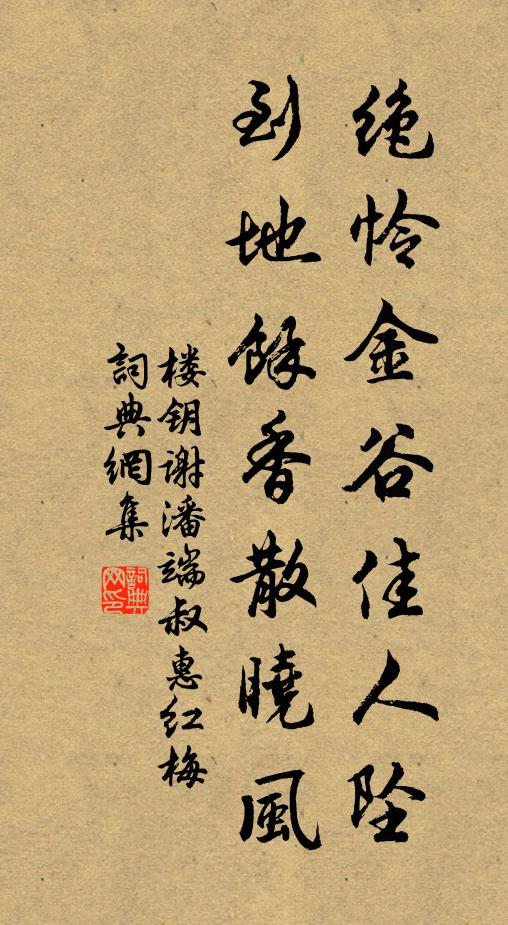 绝怜金谷佳人坠
到地馀香散曉風
楼钥谢潘端叔惠红梅
詞典網集
詞典网印